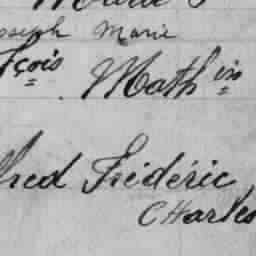 Joseph Marie
fçois Mathin
fred Frédéric
Charles